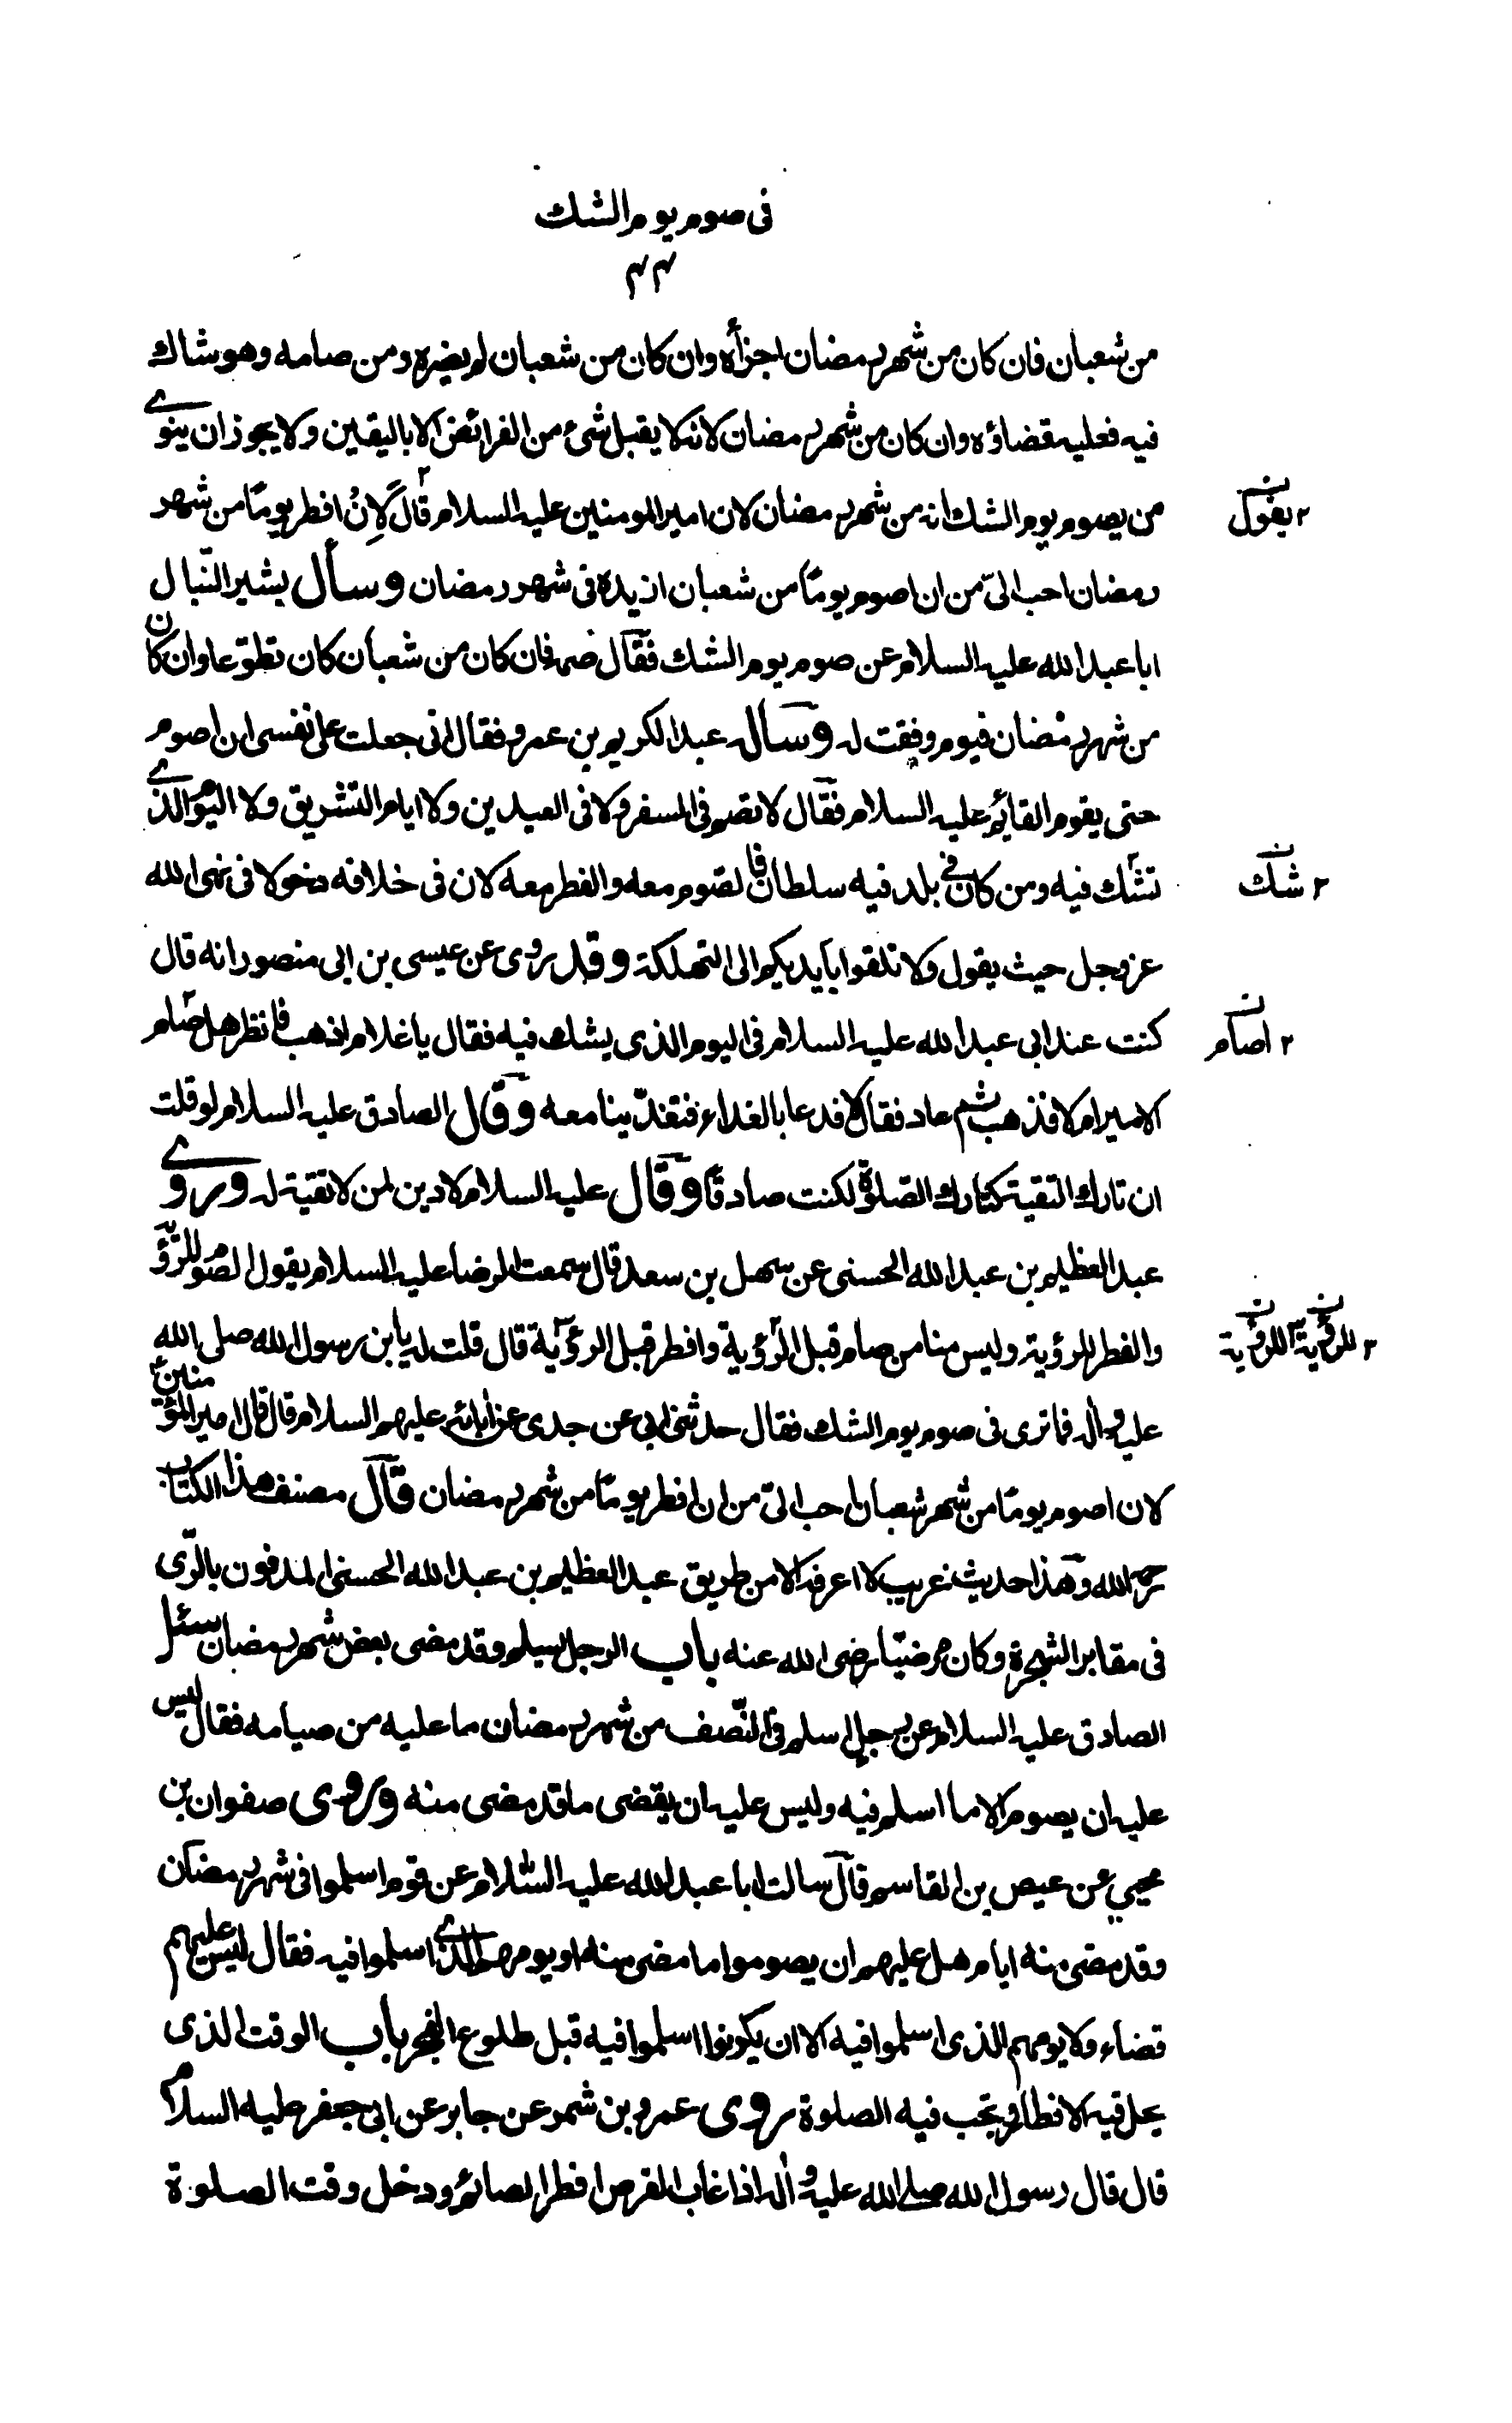 فى صوم يوم الشك
۴۴
من شعبان فان كان من شهر رمضان اجزأه وان كان من شعبان لم يضره ومن صامه وهو شاك
فيه فعليه قضاؤه وان كان من شهر رمضان لانه لا يقبل شئ من الفرائض الا باليقين ولا يجوز ان ينوے
من يصوم يوم الشك انه من شهر رمضان لان امير المومنين عليه السلام قال لان افطر يومًا من شهر
۲ يقول
رمضان احب الىّ من ان اصوم يومًا من شعبان ازيده فى شهر رمضان وسأل بشير النّبال
ابا عبد الله عليه السلام عن صوم يوم الشك فقال صمه فان كان من شعبان كان تطوّعا وان كان
من شهر رمضان فيوم وفقت له وسأله عبد الكريم بن عمرو فقال انى جعلت على نفسى ان اصوم
حتى يقوم القائم عليه السلام فقال لا تصم فى السفر ولا فى العيدين ولا ايام التشريق ولا اليوم الذے
تشك فيه ومن كان فى بلد فيه سلطان فالصوم معه والفطر معه لان فى خلافه دخولا فى نهى الله
۲ شك
عز وجل حيث يقول ولا تلقوا بأيديكم الى التهلكة وقد روى عن عيسى بن ابى منصور انه قال
كنت عند ابى عبد الله عليه السلام فى اليوم الذى يشك فيه فقال يا غلام اذهب فانظر هل صام
۲ اصام
الامير ام لا فذهب ثم عاد فقال لا فدعا بالغداء فتغدّينا معه وقال الصادق عليه السلام لو قلت
ان تارك التقية كتارك الصلوة لكنت صادقًا وقال عليه السلام لا دين لمن لا تقية له وروے
عبد العظيم بن عبد الله الحسنى عن سهل بن سعد قال سمعت الرضا عليه السلام يقول الصوم للرّؤية
والفطر للرؤية وليس منا من صام قبل الرّؤية وافطر قبل الرؤية قال قلت له يا بن رسول الله صلى الله
۲ للرؤية ۳ للرؤية
عليه واله فما ترى فى صوم يوم الشك فقال حدثنى ابى عن جدى عن ابائه عليهم السلام قال قال امير المؤمنين
لان اصوم يومًا من شهر شعبان احب الىّ من ان افطر يومًا من شهر رمضان قال مصنف هذا الكتاب
رحمه الله وهذا حديث غريب لا اعرفه الا من طريق عبد العظيم بن عبد الله الحسنى المدفون بالرّى
فى مقابر الشجرة وكان مرضيّا رضى الله عنه باب الرجل يسلم وقد مضى بعض شهر رمضان سئل
الصادق عليه السلام عن رجل اسلم فى النّصف من شهر رمضان ما عليه من صيامه فقال ليس
عليه ان يصوم الا ما اسلم فيه وليس عليه ان يقضى ما قد مضى منه وروى صفوان بن
يحيي عن عيص بن القاسم قال سالت ابا عبد الله عليه السّلام عن قوم اسلموا فى شهر رمضان
وقد مضى منه ايام هل عليهم ان يصوموا ما مضى منه او يومهم الذے اسلموا فيه فقال ليس عليهم
قضاء ولا يومهم الذى اسلموا فيه الا ان يكونوا اسلموا فيه قبل طلوع الفجر باب الوقت الذى
يحل فيه الافطار وتجب فيه الصلوة روى عمرو بن شمر عن جابر عن ابى جعفر عليه السلام
قال قال رسول الله صلى الله عليه واله اذا غاب القرص افطر الصائم ودخل وقت الصلوة